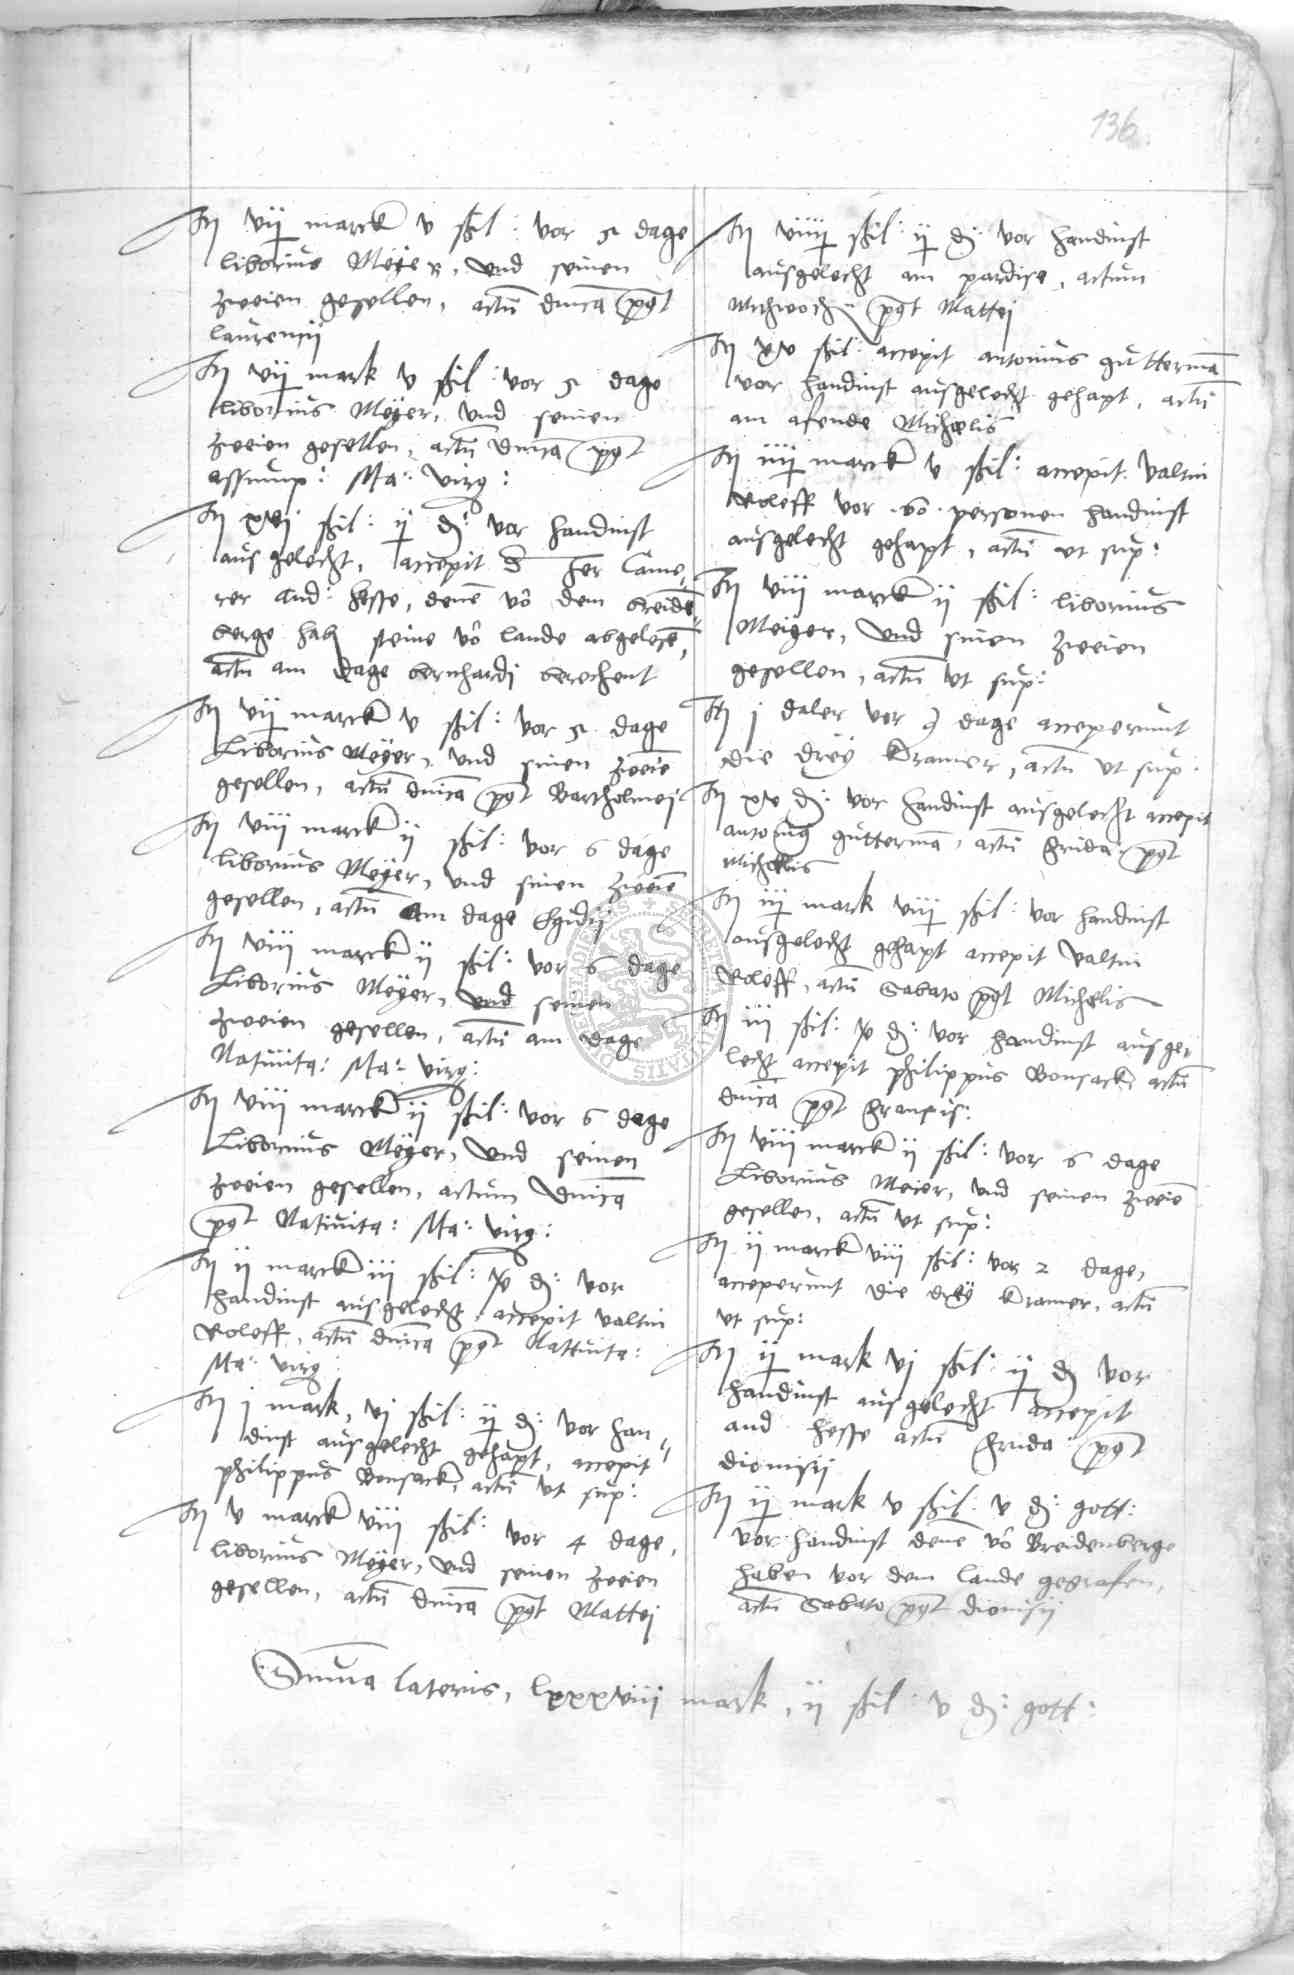 136
It vij marck v ßil: vor 5 dage
liborius Meÿer, und seinen
zweien gesellen, actū dnīca pꝰt
laurentii
It vij mark v ßil: vor 5 dage
liborius Meÿer, und seinen
zweien gesellen, actū dnīca pꝰt
assump: Ma: virg:
It xvj ßil: ij d: vor handinst
ausgelecht, accepit d her Came,
rer And: Hesse, denē vō dem breidē
berge hab steine vō lande abgelesē,
actū am dage bernhardj berechent
It vij marck v ßil: vor 5 dage
Liborius Meÿer, und sinen zweiē
gesellen, actū dnīca pꝰt Bartholmej
It viii marck ij ßil: vor 6 dage
liborius Meÿer, und sinen zweiē
gesellen, actū Am dage Egidij
It viii marck ij ßil: vor 6 dage
Liborius Meÿer, und seinen
zweien gesellen, actū am dage
Natiuita: Ma: virg:
It viii marck ij ßil: vor 6 dage
Liborius Meÿer, und seinen
zweien gesellen, actum dnīca
pꝰt Natiuita: Ma: virg:
It ij marck iii ßil: x d: vor
handinst ausgelecht, accepit valtin
Roloff, actū dnīca pꝰt Nattiuita:
Ma: virg:
It j mark, vj ßil: ij d: vor han
dinst ausgelecht gehapt, accepit
philippus Bonsack, actū ut sup:
It v marck viii ßil: vor 4 dage,
liborius Meÿer, und seinen zweien
gesellen, actū dnīca pꝰt Mattej
It viiij ßil: ij d: vor handinst
ausgelecht am pardise, actum
Mithwoch pꝰt Mattej
It xv ßil: accepit antonius guttermā
vor handinst ausgelecht gehapt, actū
am afende Michaelis
It iiij marck v ßil: accepit valtin
Roloff vor personen handinst
ausgelecht gehapt, actū ut sup:
It viii marck ij ßil: liborius
Meiger, und sinen zweien
gesellen, actū ut sup:
It j daler vor 3 dage acceperunt
die dreÿ Kramer, actū ut sup:
It xv d: vor handinst ausgelecht accepit
antoniꝰ guttermā, actū fruda pꝰt
Michaelis
It iij mark viij ßil: vor handinst
ausgelecht gehapt accepit valtin
Roloff, actū Sabato pꝰt Michaelis
It iii ßil: x d: vor handinst ausge,
lecht accepit philippus Bonsack, actū
dnīca pꝰt francis:
It viii marck ij ßil: vor 6 dage
Liborius Meier, und seinen zweiē
gesellen, actū ut sup:
It ij marck viii ßil: vor 2 dage,
acceperunt die dreÿ Kramer, actū
ut sup:
It ij mark vj ßil: ij d vor
handinst ausgelecht accepit
and hesse actū fruda pꝰt
dionisij
It ij mark v ßil: v d: gott:
vor handinst denē vō Breidenberge
haben vor dem lande gegrafen,
actū Sabato pꝰt dionisij
Summa lateris, lxxxviii mark, ij ßil: v d: gott: